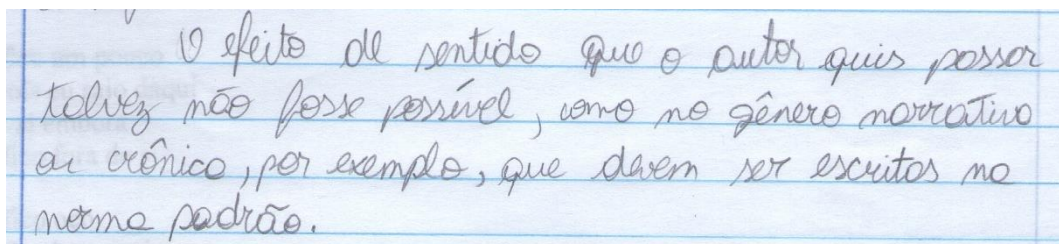 O efeito de sentido que o autor quis passar
talvez não fosse possível, como no gênero narrativo
ou crônica, por exemplo, que devem ser escritos na
norma padrão.